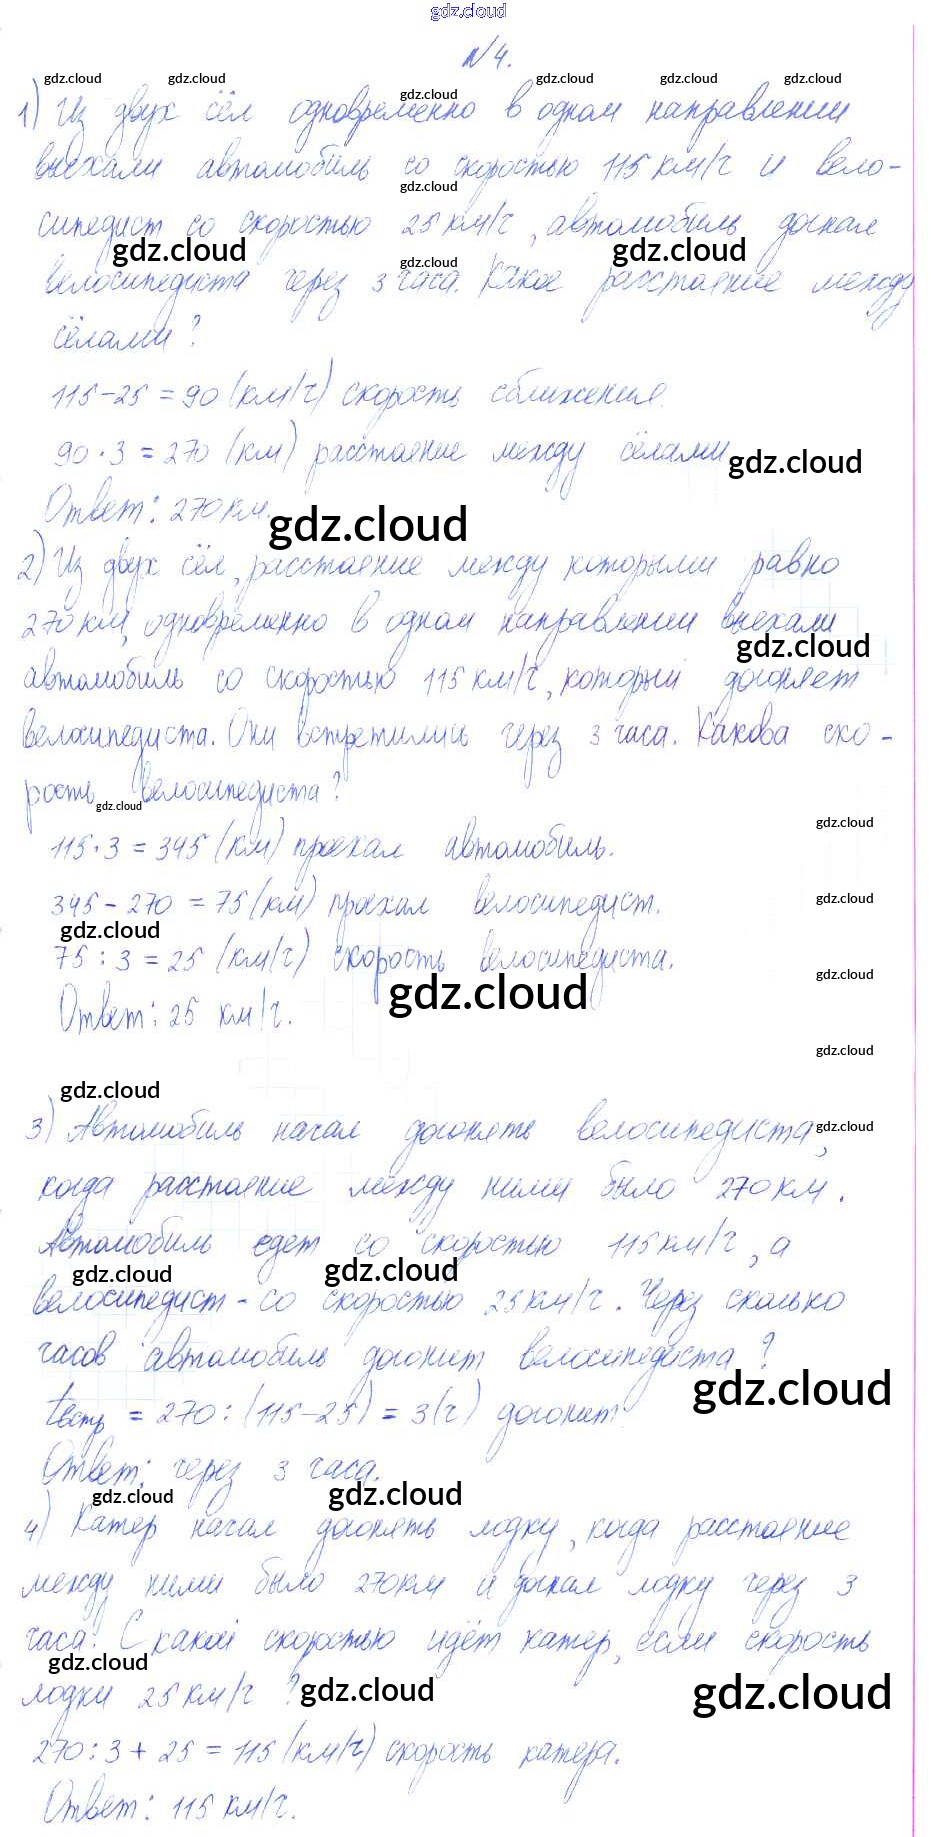 gdz.cloud
N4.
gdz.cloud gdz.cloud gdz.cloud gdz.cloud gdz.cloud gdz.cloud
1) Из двух сёл одновременно в одном направлении
выехали автомобиль со скоростью 115 км/ч и вело-
gdz.cloud
сипедист со скоростью 25 км/ч, автомобиль догнал
gdz.cloud gdz.cloud gdz.cloud
велосипедиста через 3 часа. Какое расстояние между
сёлами?
115-25=90 (км/ч) скорость сближения.
90·3=270 (км) расстояние между сёлами
gdz.cloud
Ответ: 270 км.
gdz.cloud
2) Из двух сёл, расстояние между которыми равно
270 км, одновременно в одном направлении выехали
gdz.cloud
автомобиль со скоростью 115 км/ч, который догоняет
велосипедиста. Они встретились через 3 часа. Какова ско-
рость велосипедиста?
gdz.cloud
gdz.cloud
115·3=345 (км) проехал автомобиль.
345-270=75 (км) проехал велосипедист.
gdz.cloud
gdz.cloud
75:3=25 (км/ч) скорость велосипедиста.
gdz.cloud
gdz.cloud
Ответ: 25 км/ч.
gdz.cloud
gdz.cloud
3) Автомобиль начал догонять велосипедиста,
gdz.cloud
когда расстояние между ними было 270 км.
Автомобиль едет со скоростью 115 км/ч, а
gdz.cloud gdz.cloud
велосипедист - со скоростью 25 км/ч. Через сколько
часов автомобиль догонит велосипедиста?
gdz.cloud
tвстр = 270:(115-25)=3(ч) догонит
Ответ: через 3 часа.
gdz.cloud gdz.cloud
4) Катер начал догонять лодку, когда расстояние
между ними было 270 км и догнал лодку через 3
часа. С какой скоростью идёт катер, если скорость
gdz.cloud
лодки 25 км/ч?
gdz.cloud gdz.cloud
270:3+25=115 (км/ч) скорость катера.
Ответ: 115 км/ч.